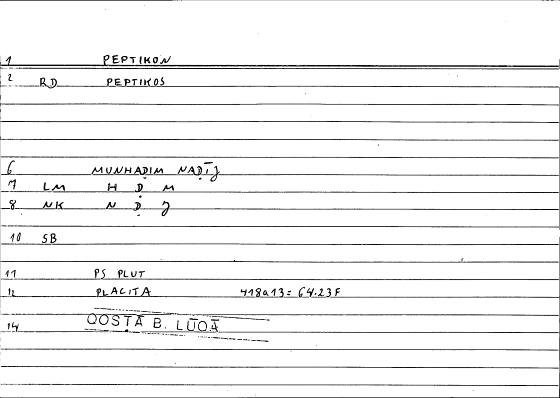 1 PEPTIKON
2 RD PEPTIKOS
6 MUNHAḌIM NAḌĪǦ
7 LM H Ḍ M
8 NK N Ḍ Ǧ
10 SB
11 PS PLUT
12 PLACITA 418a13 = 64.23F
14 QOSṬĀ B. LŪQĀ